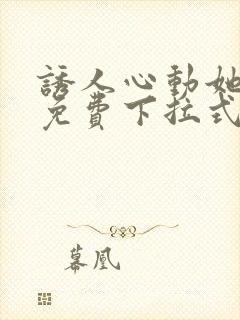 誘人心動她
免費下拉式
慕凰